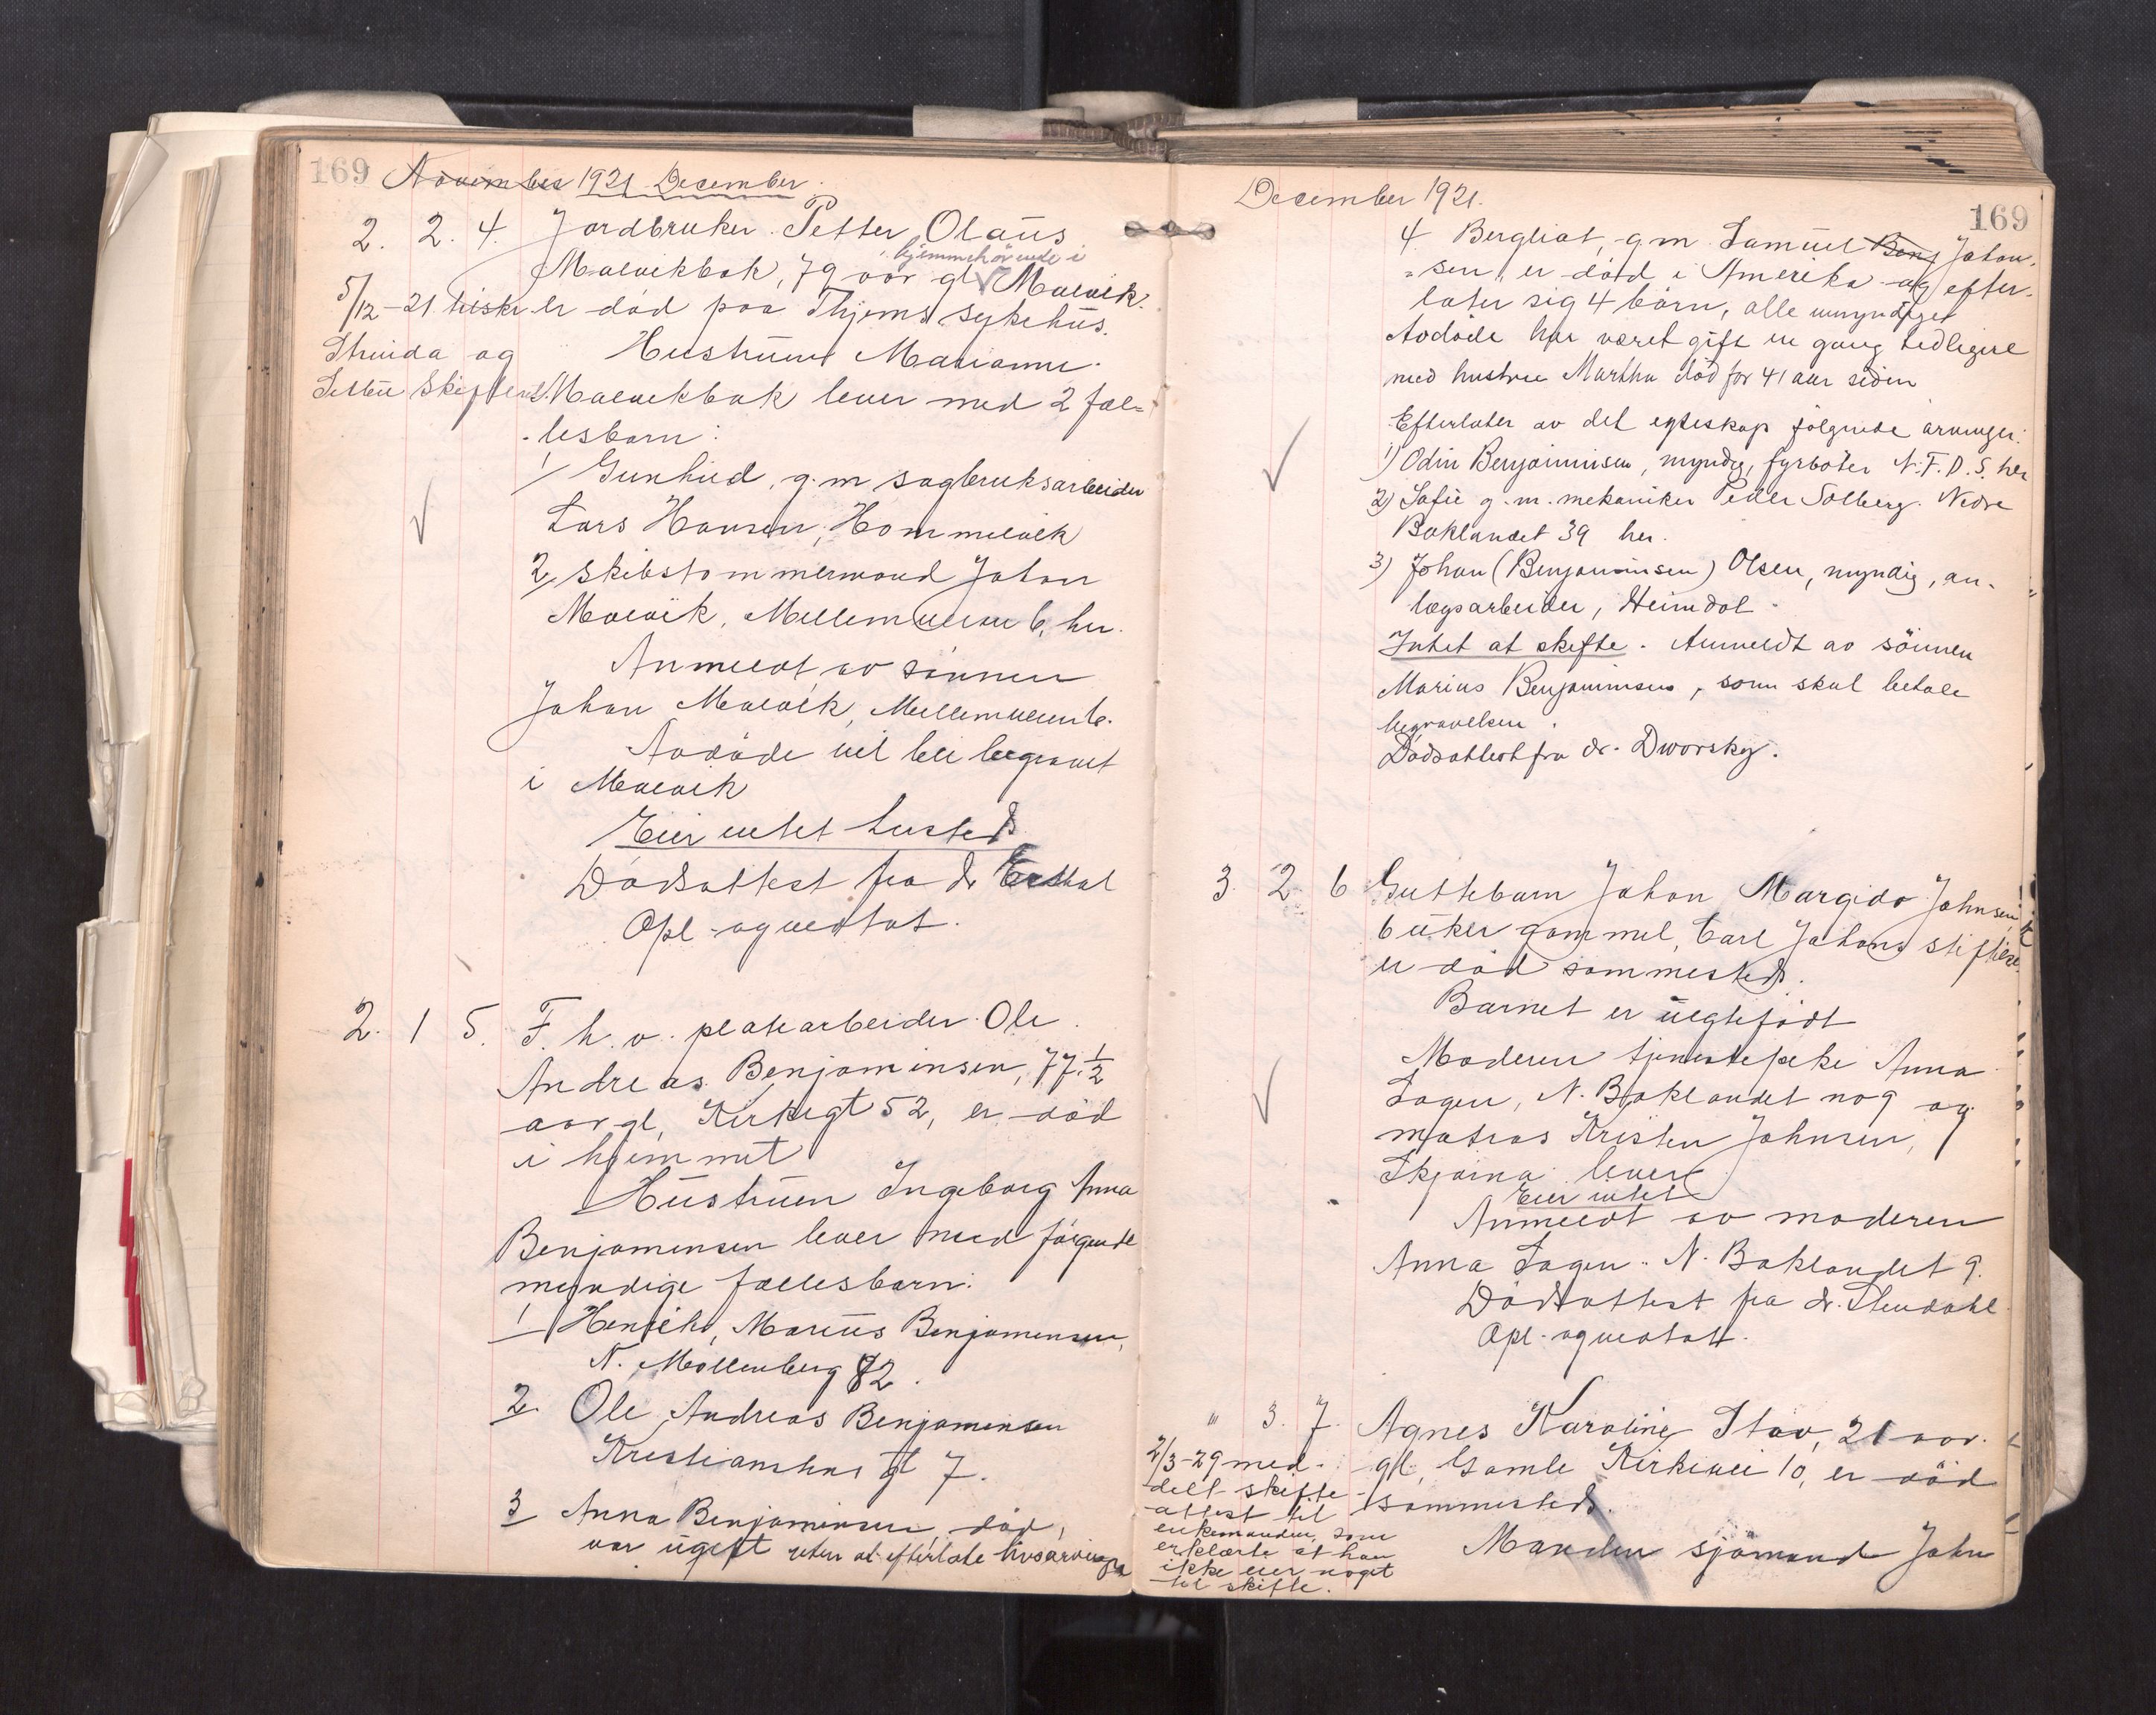 169 November 1921 December.
2. 2. 4. Jordbruker Petter Olaus
hjemmehörende i
Malvikbak, 79 aar gl Malvik.
5/12-21 tilskr. er död paa Thjems sykehus.
Strinda og Hustruen Marianne
Selbu Skifteret. Malvikbak lever med 2 fæl-
lesbarn:
1/ Gunhild, g.m sagbruksarbeider
Lars Hansen, Hommelvik
2/ Skibstømmermand Johan
Malvik, Mellemveien 6, her.
Anmeldt av sönnen
Johan Malvik, Mellemveien 6.
Avdöde vil bli begravet
i Malvik
Eier intet husted
Dödsattest fra dr
Opl. og vedtat.
2. 1 5. F. h. v. platearbeider Ole
Andreas Benjaminsen, 77 1/2
aar gl, Kirkegt 52, er död
i hjemmet
Hustruen Ingeborg Anna
Benjaminsen lever med fölgende
myndige fællesbarn:
1 Henrik Marius Benjaminsen,
N. Möllenberg 72.
2. Ole Andreas Benjaminsen
Kristianstens gt 7.
3 Anna Benjaminsen, död,
var ugift uten at efterlate livsarvinger
December 1921.
169
4 Bergliot, g.m. Samuel Benj Johan-
sen, er död i Amerika og efter-
later sig 4 börn, alle umyndiget
Avdöde har været gift en gang tidligere
med hustru Martha död for 41 aar siden
Efterlater av det egteskap fölgende arvinger:
1) Odin Benjaminsen, myndig, fyrböter N.F.D.S. her
2) Sofie g. m. mekaniker Peder Solberg. Nedre
Baklandet 39 her.
3) Johan (Benjaminsen) Olsen, myndig, an-
lægsarbeider, Heimdal.
Intet at skifte. Anmeldt av sönnen
Marius Benjaminsen, som skal betale
begravelsen.
Dödsattest fra dr. Dworsky.
3. 2. 6 Guttebarn Johan Margido Johnsen,
6 uker gammel, Carl Johans stiftelse
er död sammesteds.
Barnet er uegtefödt
Moderen tjenestepike Anna
Sagen, N. Baklandet no 9 og
matros Kristen Johnsen,
Skjørna lever
Eier intet
Anmeldt av moderen
Anna Sagen. N. Baklandet 9.
Dödsattest fra dr. Stendahl
Opl. og vedtatt.
" 3. 7. Agnes Karoline Stav, 21 aar.
gl, Gamle Kirkevei 10, er död
sammesteds.
2/3-29 med-
delt skifte-
attest til
enkemanden, som
erklærte at han
ikke eier noget
til skifte.
Manden sjömand John